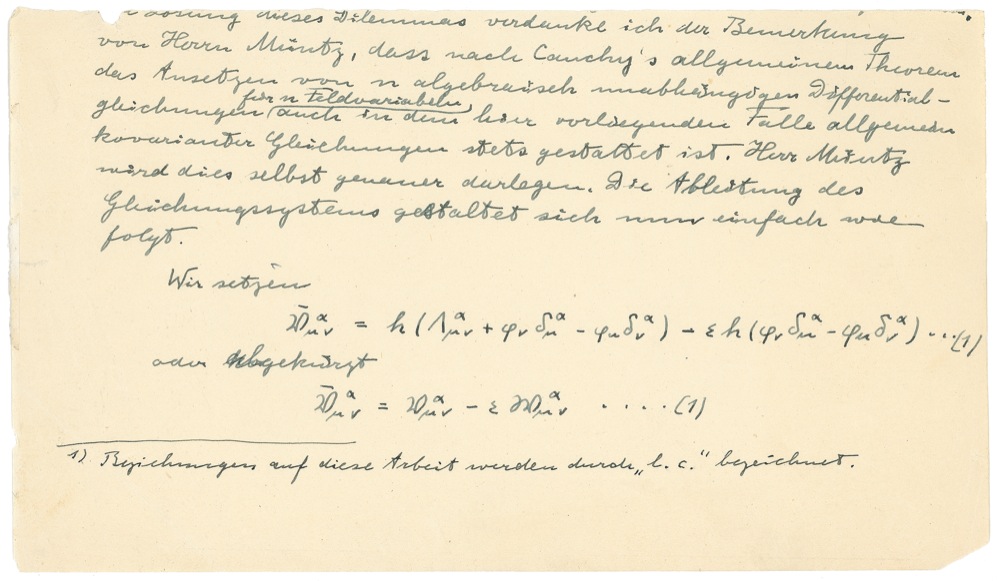 Lösung dieses Dilemmas verdanke ich der Bemerkung
von Herrn Müntz, dass nach Cauchy's allgemeinem Theorem
das Ansetzen von n algebraisch unabhängigen Differential-
für n Feldvariabeln
gleichungen auch in dem hier vorliegenden Falle allgemein
kovarianter Gleichungen stets gestattet ist. Herr Müntz
wird dies selbst genauer darlegen. Die Ableitung des
Gleichungssystems gestaltet sich nun einfach wie
folgt.
Wir setzen
𝔙̄^α_{μν} = h(Λ^α_{μν} + φ_ν δ^α_μ − φ_μ δ^α_ν) − ε h(φ_ν δ^α_μ − φ_μ δ^α_ν) ...(1)
oder abgekürzt
𝔙̄^α_{μν} = 𝔙^α_{μν} − ε 𝔚^α_{μν} ....(1)
1) Beziehungen auf diese Arbeit werden durch „l. c.“ bezeichnet.